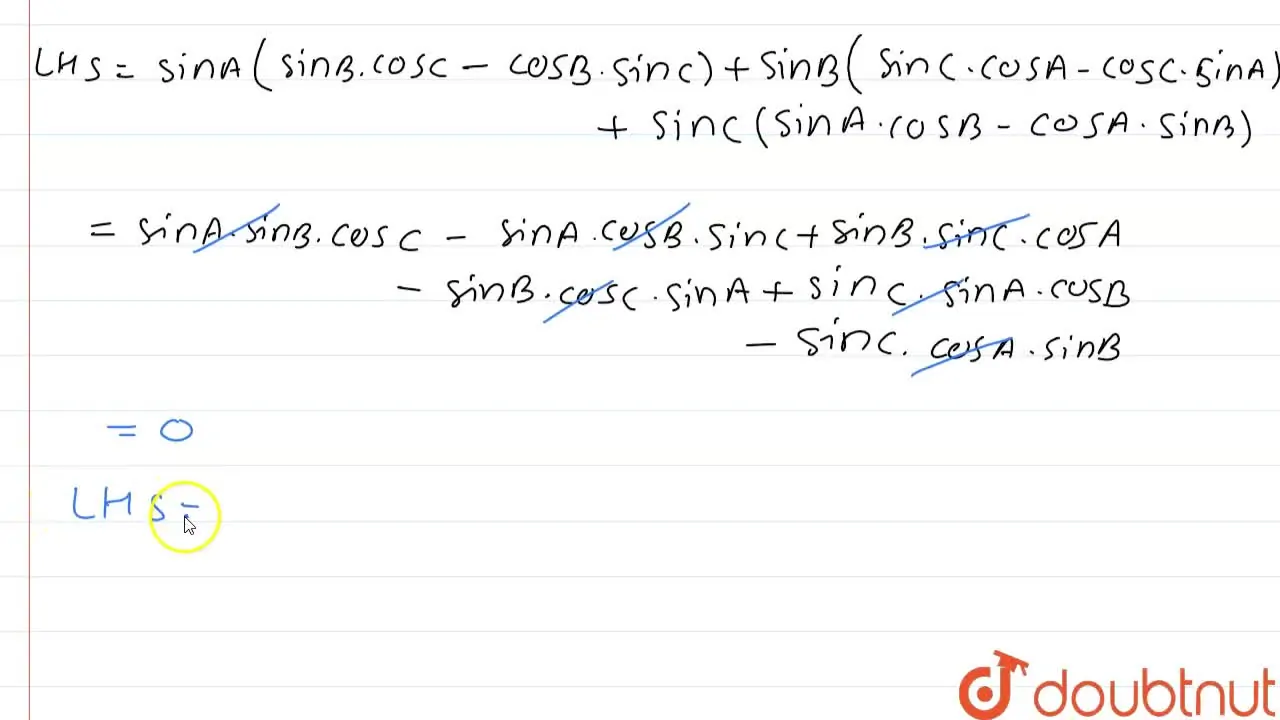 LHS = sinA(sinB.cosC - cosB.sinC) + sinB(sinC.cosA - cosC.sinA)
+ sinC(sinA.cosB - cosA.sinB)
= sinA.sinB.cosC - sinA.cosB.sinC + sinB.sinC.cosA
- sinB.cosC.sinA + sinC.sinA.cosB
- sinC.cosA.sinB
= 0
LHS =
doubtnut